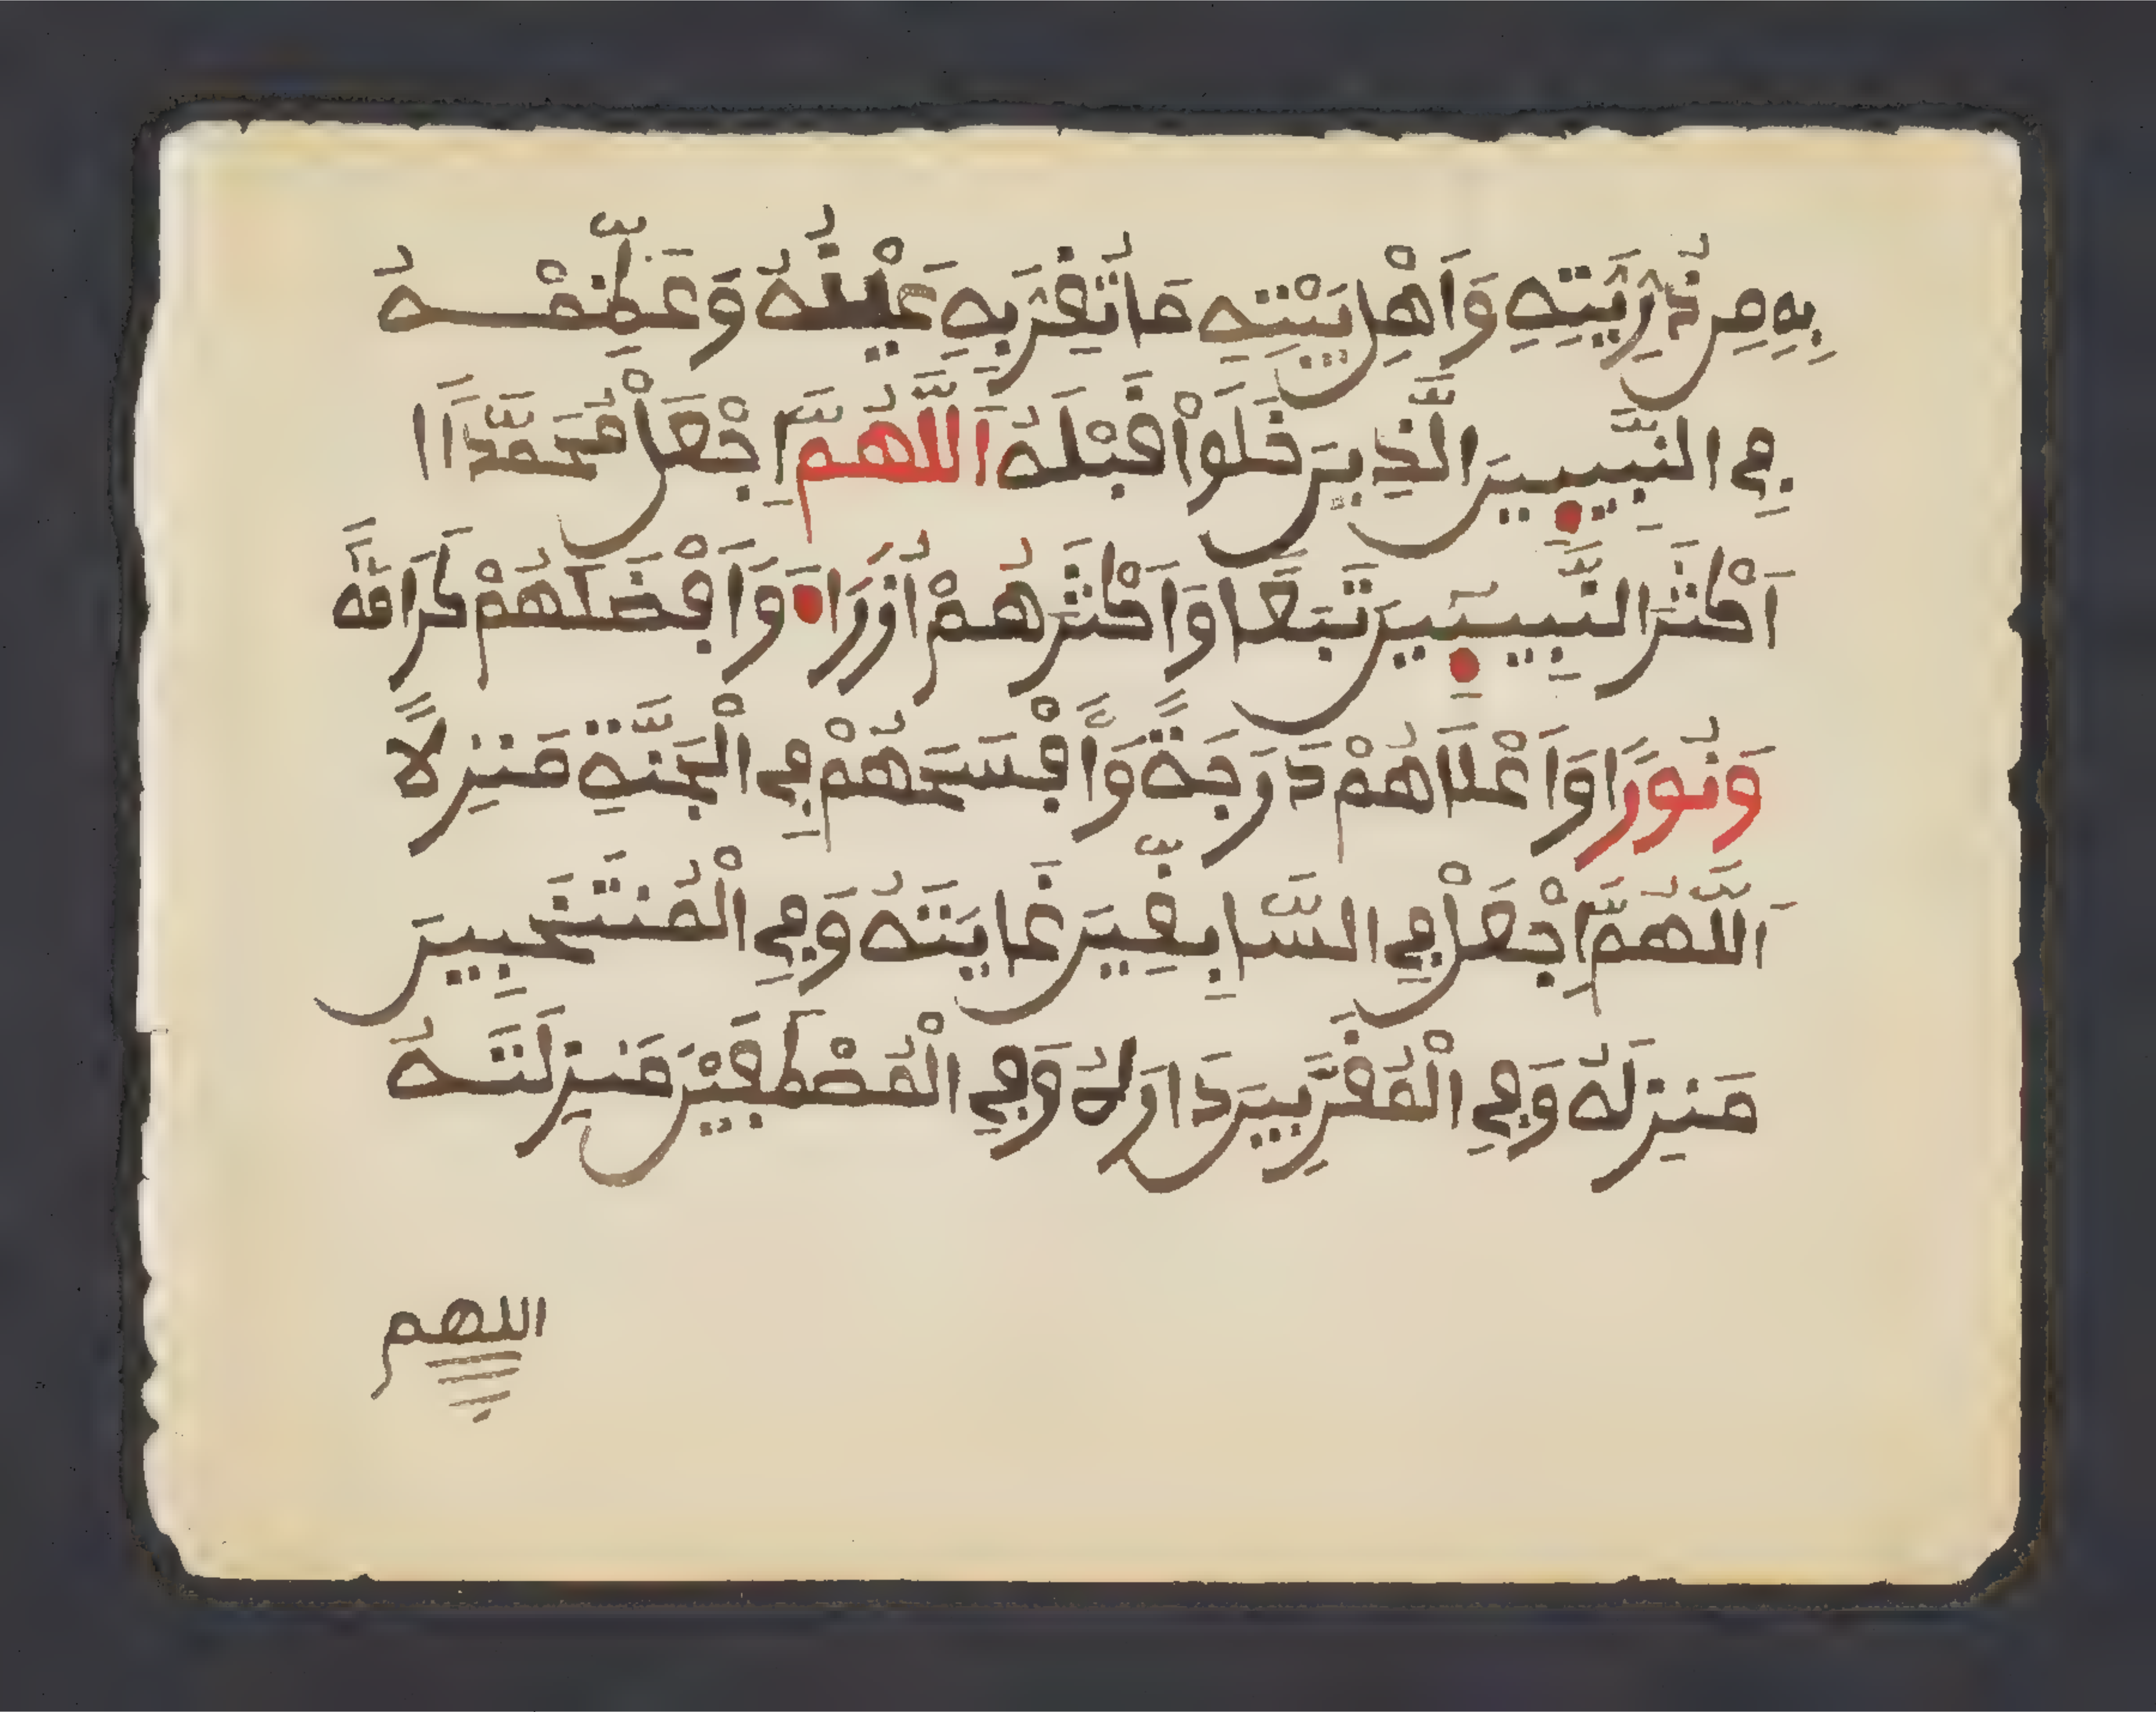 بِهِ مِن ذُرِّيَّتِهِ وَأَهْلِ بَيْتِهِ مَا تُقَرُّ بِهِ عَيْنُهُ وَعَظِّمْهُ
فِي النَّبِيِّينَ الَّذِينَ خَلَوْا قَبْلَهُ اَللَّهُمَّ اِجْعَلْ مُحَمَّدًا
أَكْثَرَ النَّبِيِّينَ تَبَعًا وَأَكْثَرَهُمْ أُزَرَاءَ وَأَفْضَلَهُمْ كَرَامَةً
وَنُورًا وَأَعْلَاهُمْ دَرَجَةً وَأَفْسَحَهُمْ فِي الْجَنَّةِ مَنزِلًا
اَللَّهُمَّ اِجْعَلْ فِي السَّابِقِينَ غَايَتَهُ وَفِي الْمُنتَخَبِينَ
مَنزِلَهُ وَفِي الْمُقَرَّبِينَ دَارَهُ وَفِي الْمُصْطَفَيْنَ مَنزِلَتَهُ
اللهم